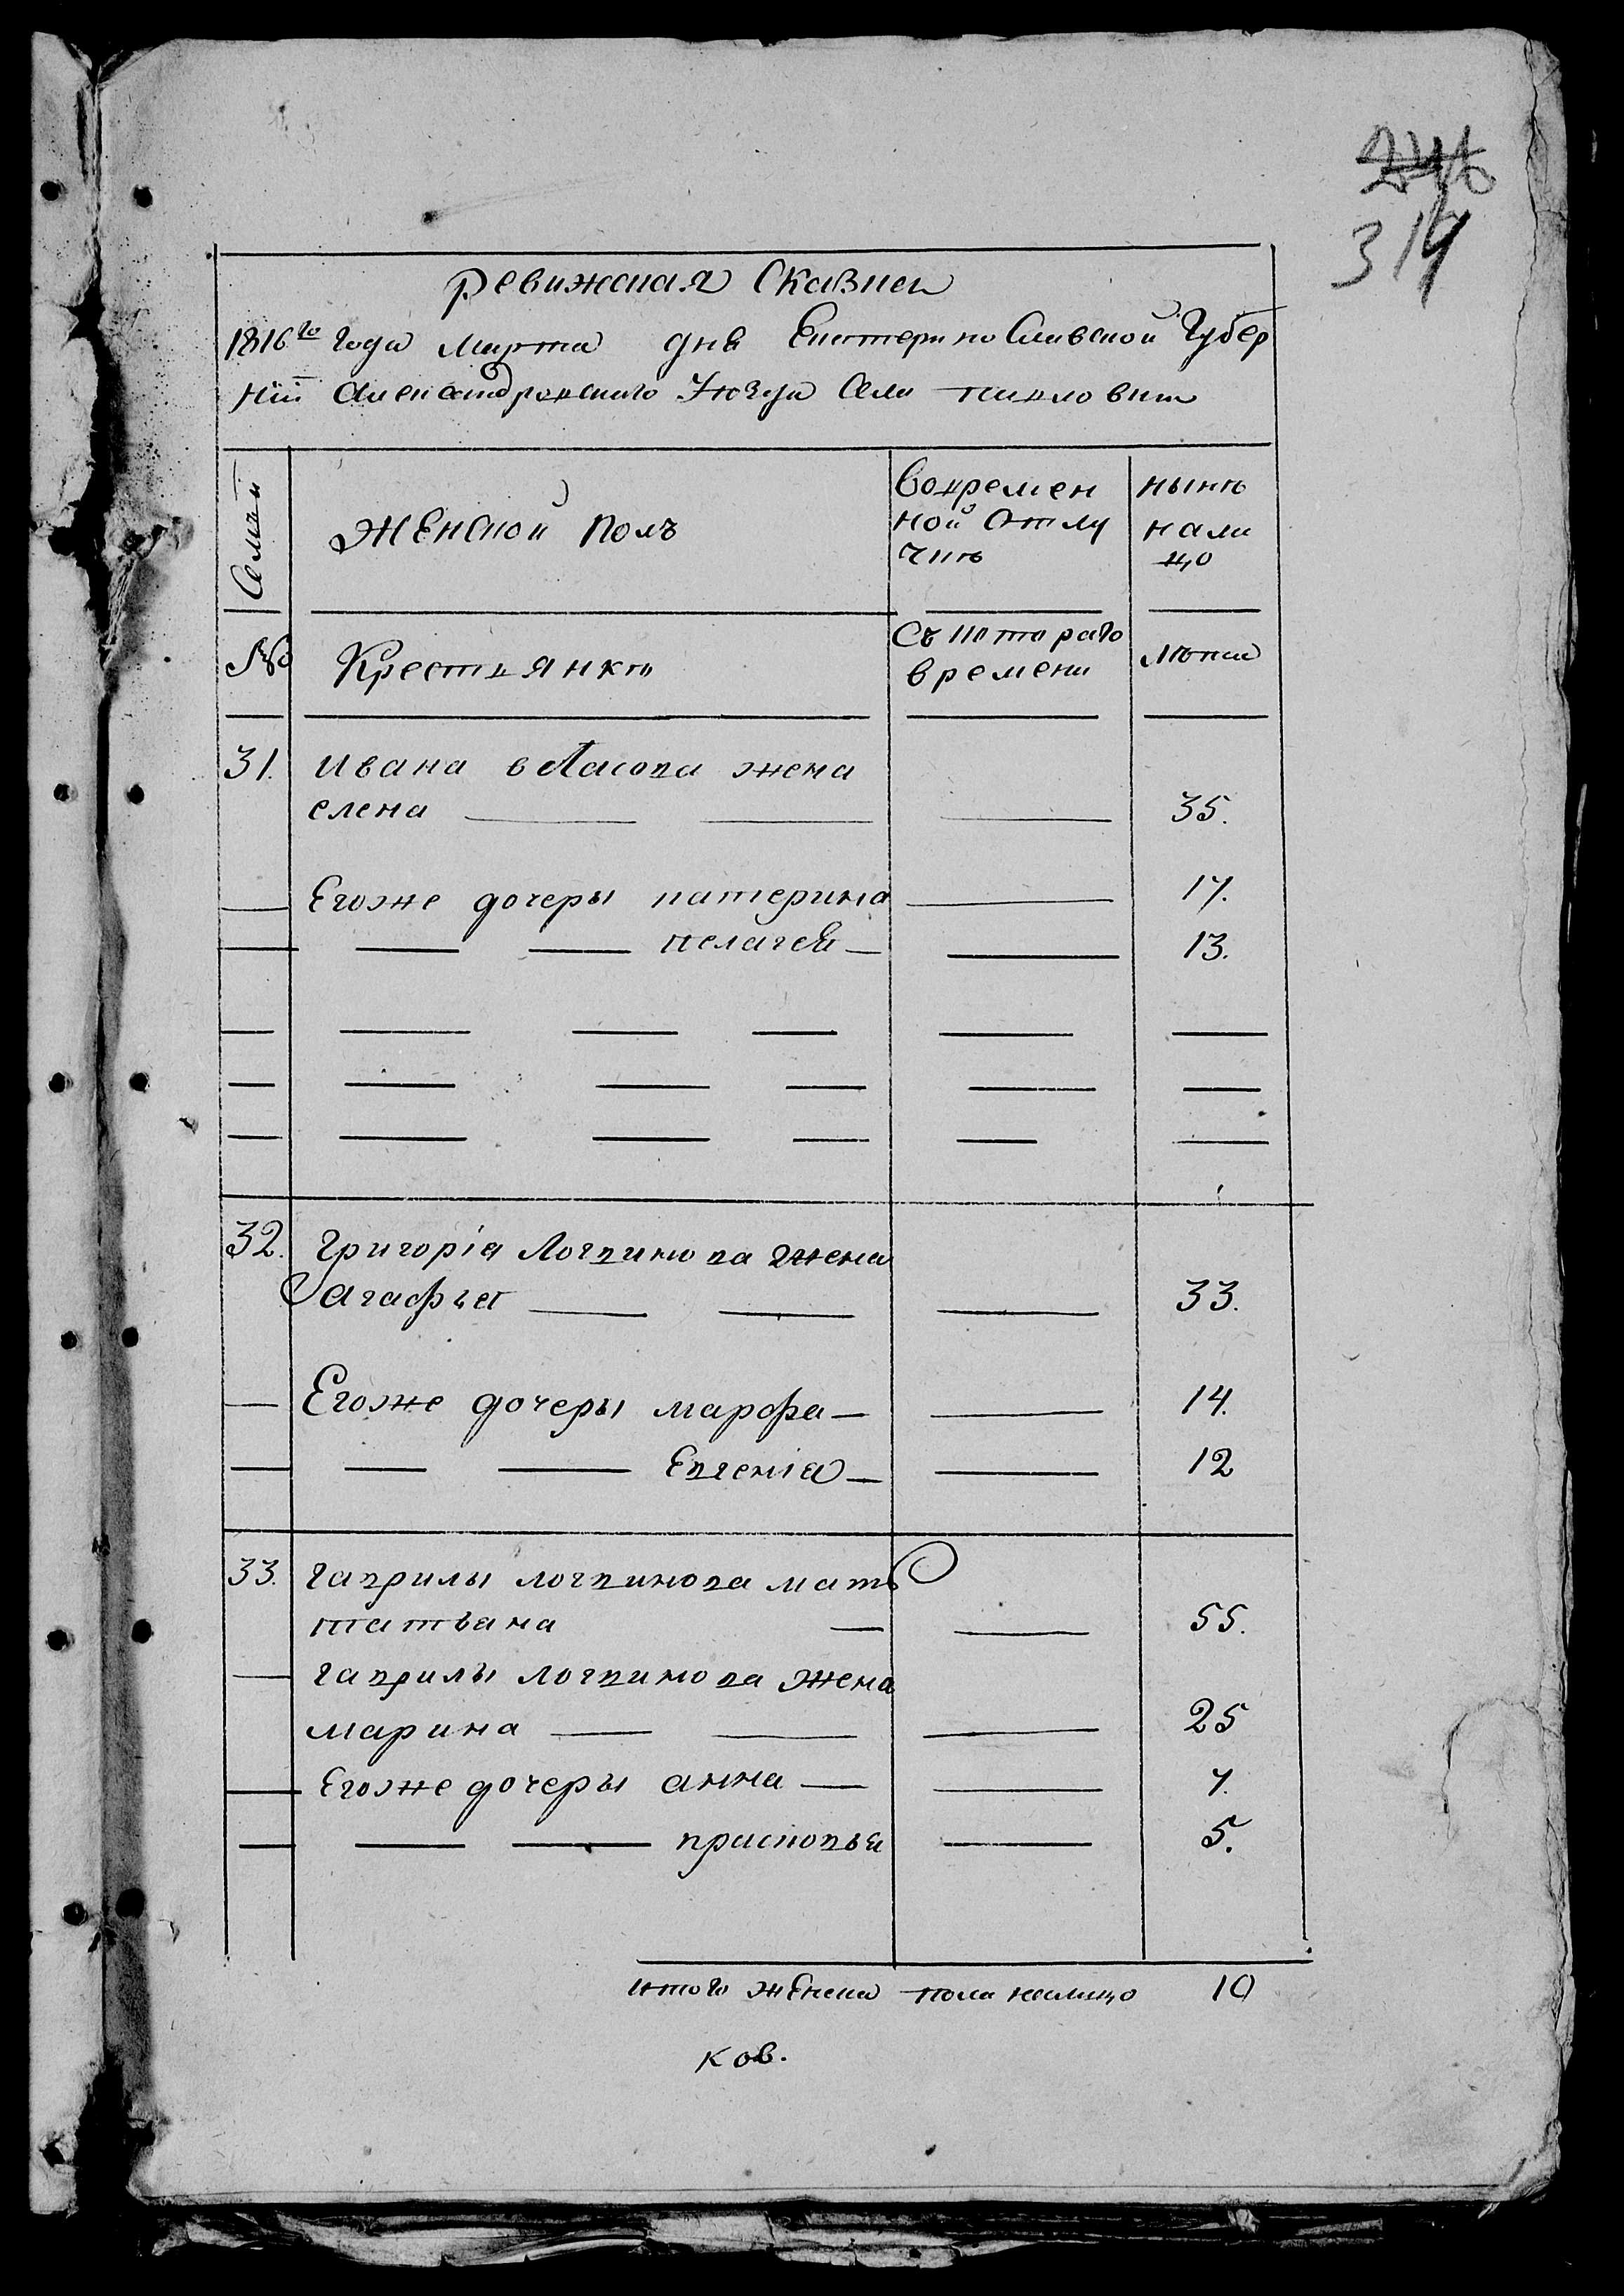 319
Ревижская Сказка
1816го Года Марта дня Екатерино Славской Губер
нии Александровского Уезда Села Павловки
Семьи
Женской Полъ
Вовремен
ной Отлу
чке
ныне
нали
цо
№
Крестьянкъ
Съ которого
времени
лета
31. Ивана власова жена
елена 35.
Егоже дочеры катерина 17.
пелагея 13.
32. Григорія Логвинова жена
агафья 33.
Егоже дочеры марфа 14.
Евгенія 12
33. гаврилы логвинова мать
татьяна 55.
гаврилы логвинова жена
марина 25
Егоже дочеры анна 7.
прасковья 5.
итого женска пола налицо 10
ков.